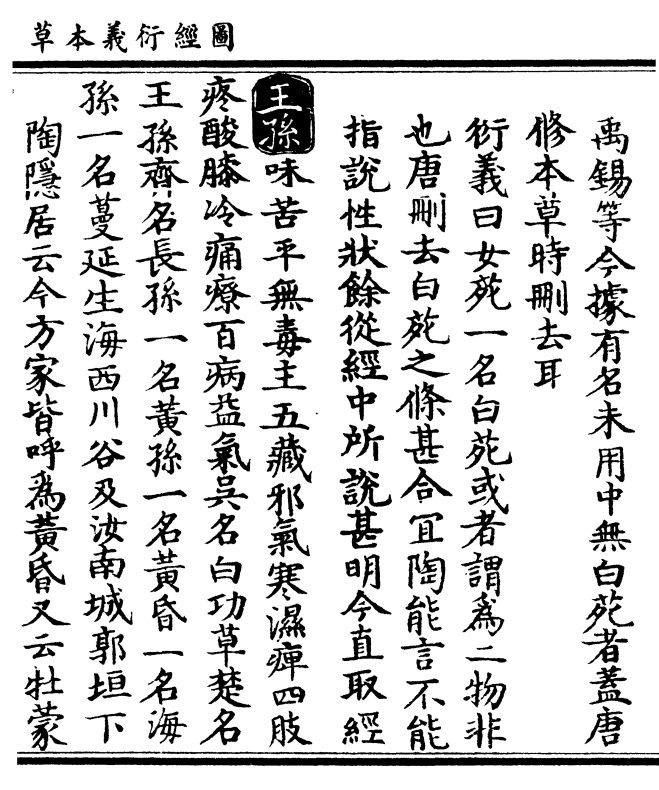 草本義衍經圖
禹錫等今據有名未用中無白菀者蓋唐
修本草時刪去耳
衍義曰女菀一名白菀或者謂爲二物非
也唐刪去白菀之條甚合宜陶能言不能
指說性狀餘從經中所說甚明今直取經
王孫味苦平無毒主五藏邪氣寒濕痺四肢
疼酸膝冷痛療百病益氣吳名白功草楚名
王孫齊名長孫一名黃孫一名黃昏一名海
孫一名蔓延生海西川谷及汝南城郭垣下
陶隱居云今方家皆呼爲黃昏又云牡蒙